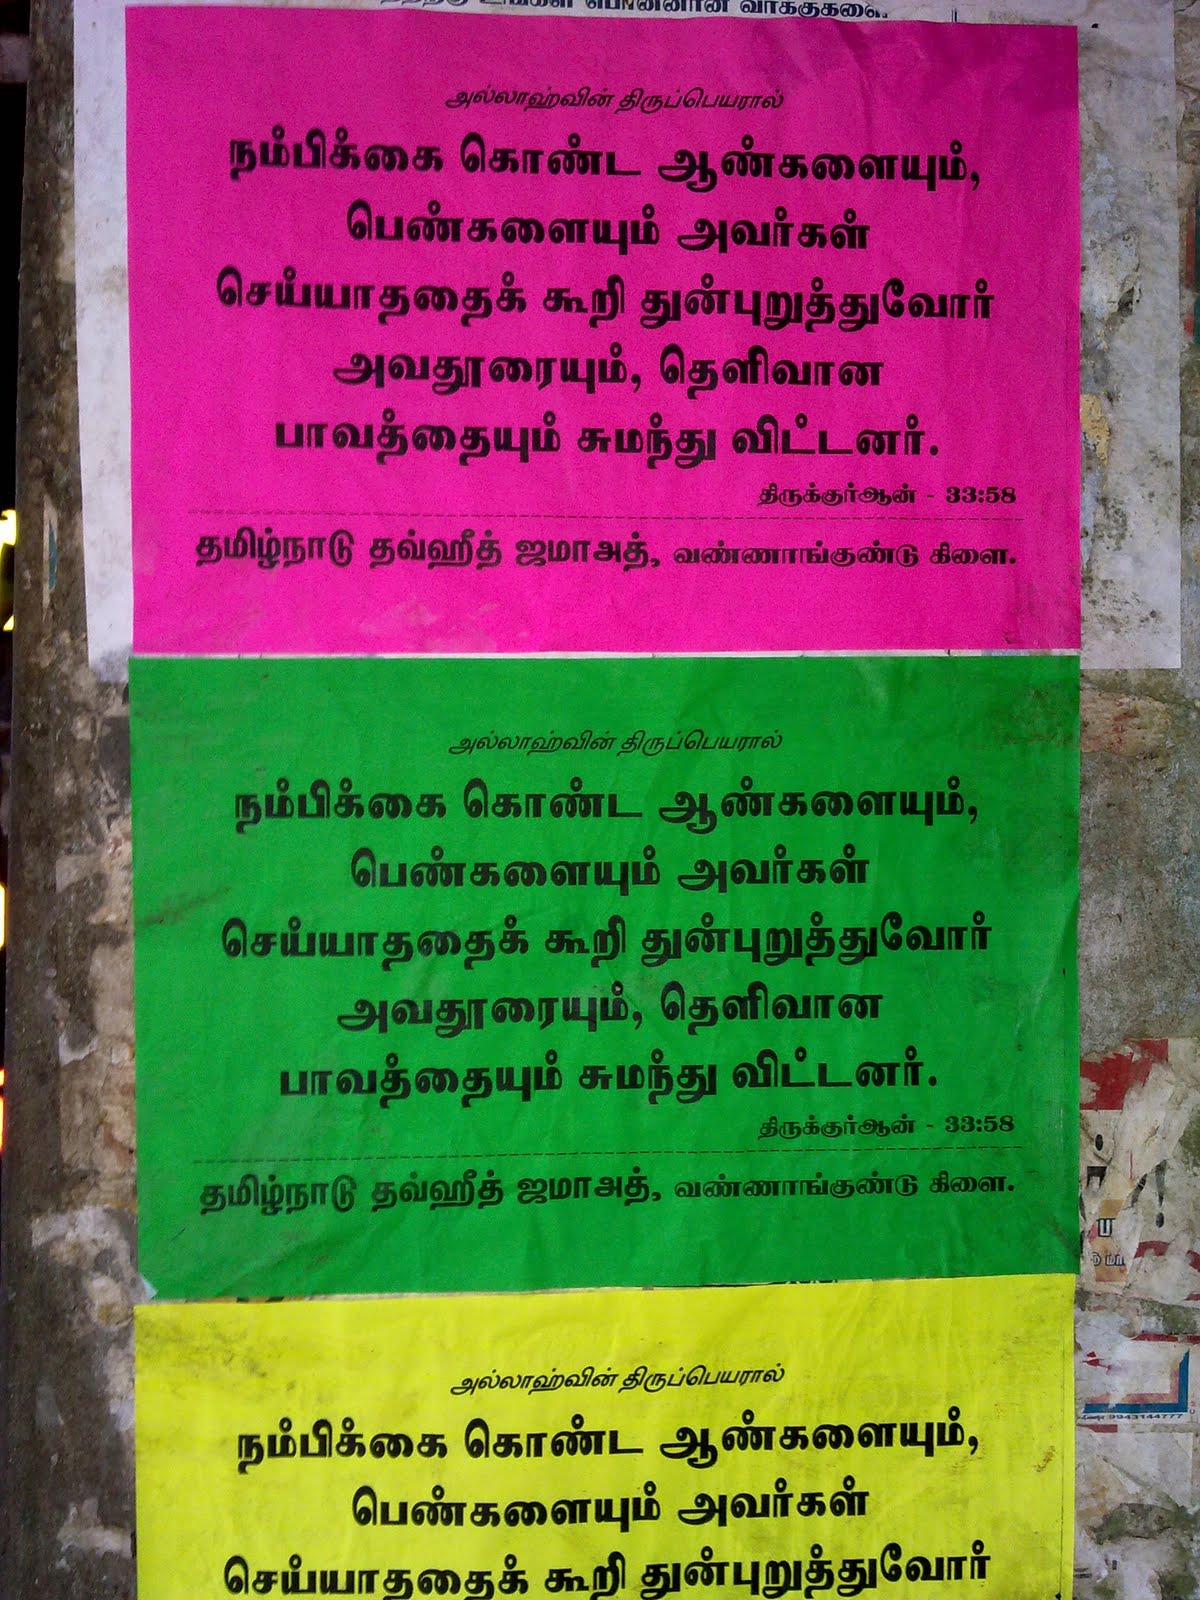 வாக்குகளை
அல்லாஹ்வின் திருப்பெயரால்
நம்பிக்கை கொண்ட ஆண்களையும்,
பெண்களையும் அவர்கள்
செய்யாததைக் கூறி துன்புறுத்துவோர்
அவதூரையும், தெளிவான
பாவத்தையும் சுமந்து விட்டனர்.
திருக்குர்ஆன் - 33:58
தமிழ்நாடு தவ்ஹீத் ஜமாஅத், வண்ணாங்குண்டு கிளை.
அல்லாஹ்வின் திருப்பெயரால்
நம்பிக்கை கொண்ட ஆண்களையும்,
பெண்களையும் அவர்கள்
செய்யாததைக் கூறி துன்புறுத்துவோர்
அவதூரையும், தெளிவான
பாவத்தையும் சுமந்து விட்டனர்.
திருக்குர்ஆன் - 33:58
தமிழ்நாடு தவ்ஹீத் ஜமாஅத், வண்ணாங்குண்டு கிளை.
அல்லாஹ்வின் திருப்பெயரால்
நம்பிக்கை கொண்ட ஆண்களையும்,
பெண்களையும் அவர்கள்
செய்யாததைக் கூறி துன்புறுத்துவோர்
9943144777